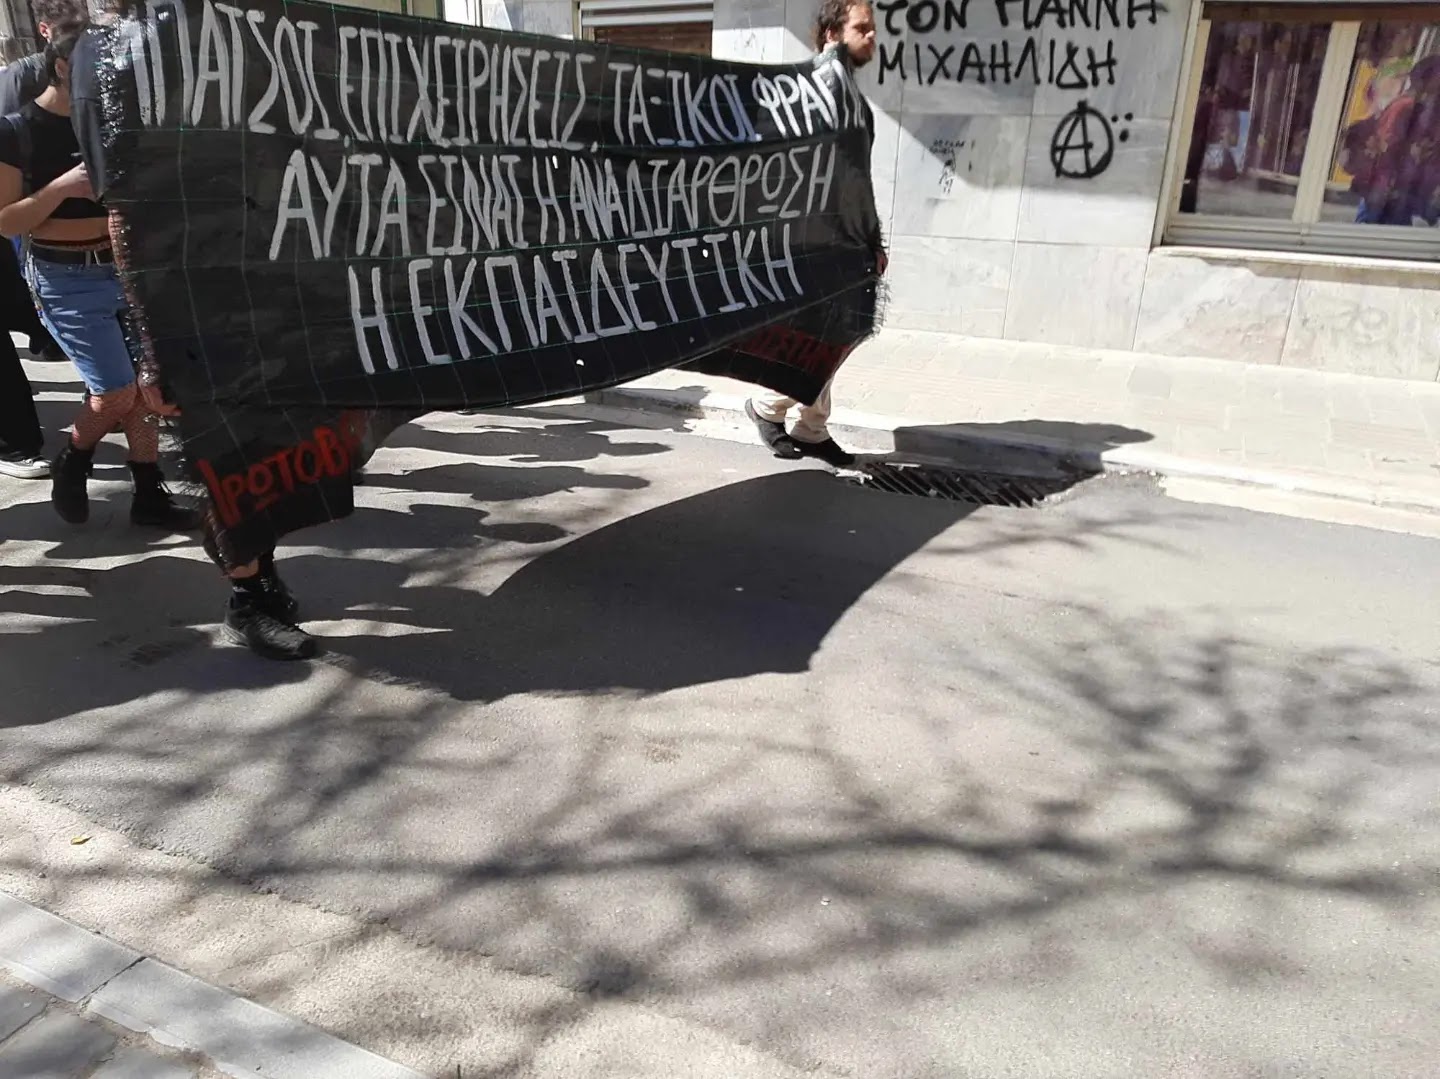 ΜΠΑΤΣΟΙ, ΕΠΙΧΕΙΡΗΣΕΙΣ, ΤΑΞΙΚΟΙ ΦΡΑΓ
ΑΥΤΑ ΕΙΝΑΙ Η ΑΝΑΔΙΑΡΘΡΩΣΗ
Η ΕΚΠΑΙΔΕΥΤΙΚΗ
ΠΡΩΤΟΒ
ΤΟΝ ΓΙΑΝΝΗ
ΜΙΧΑΗΛΙΔΗ